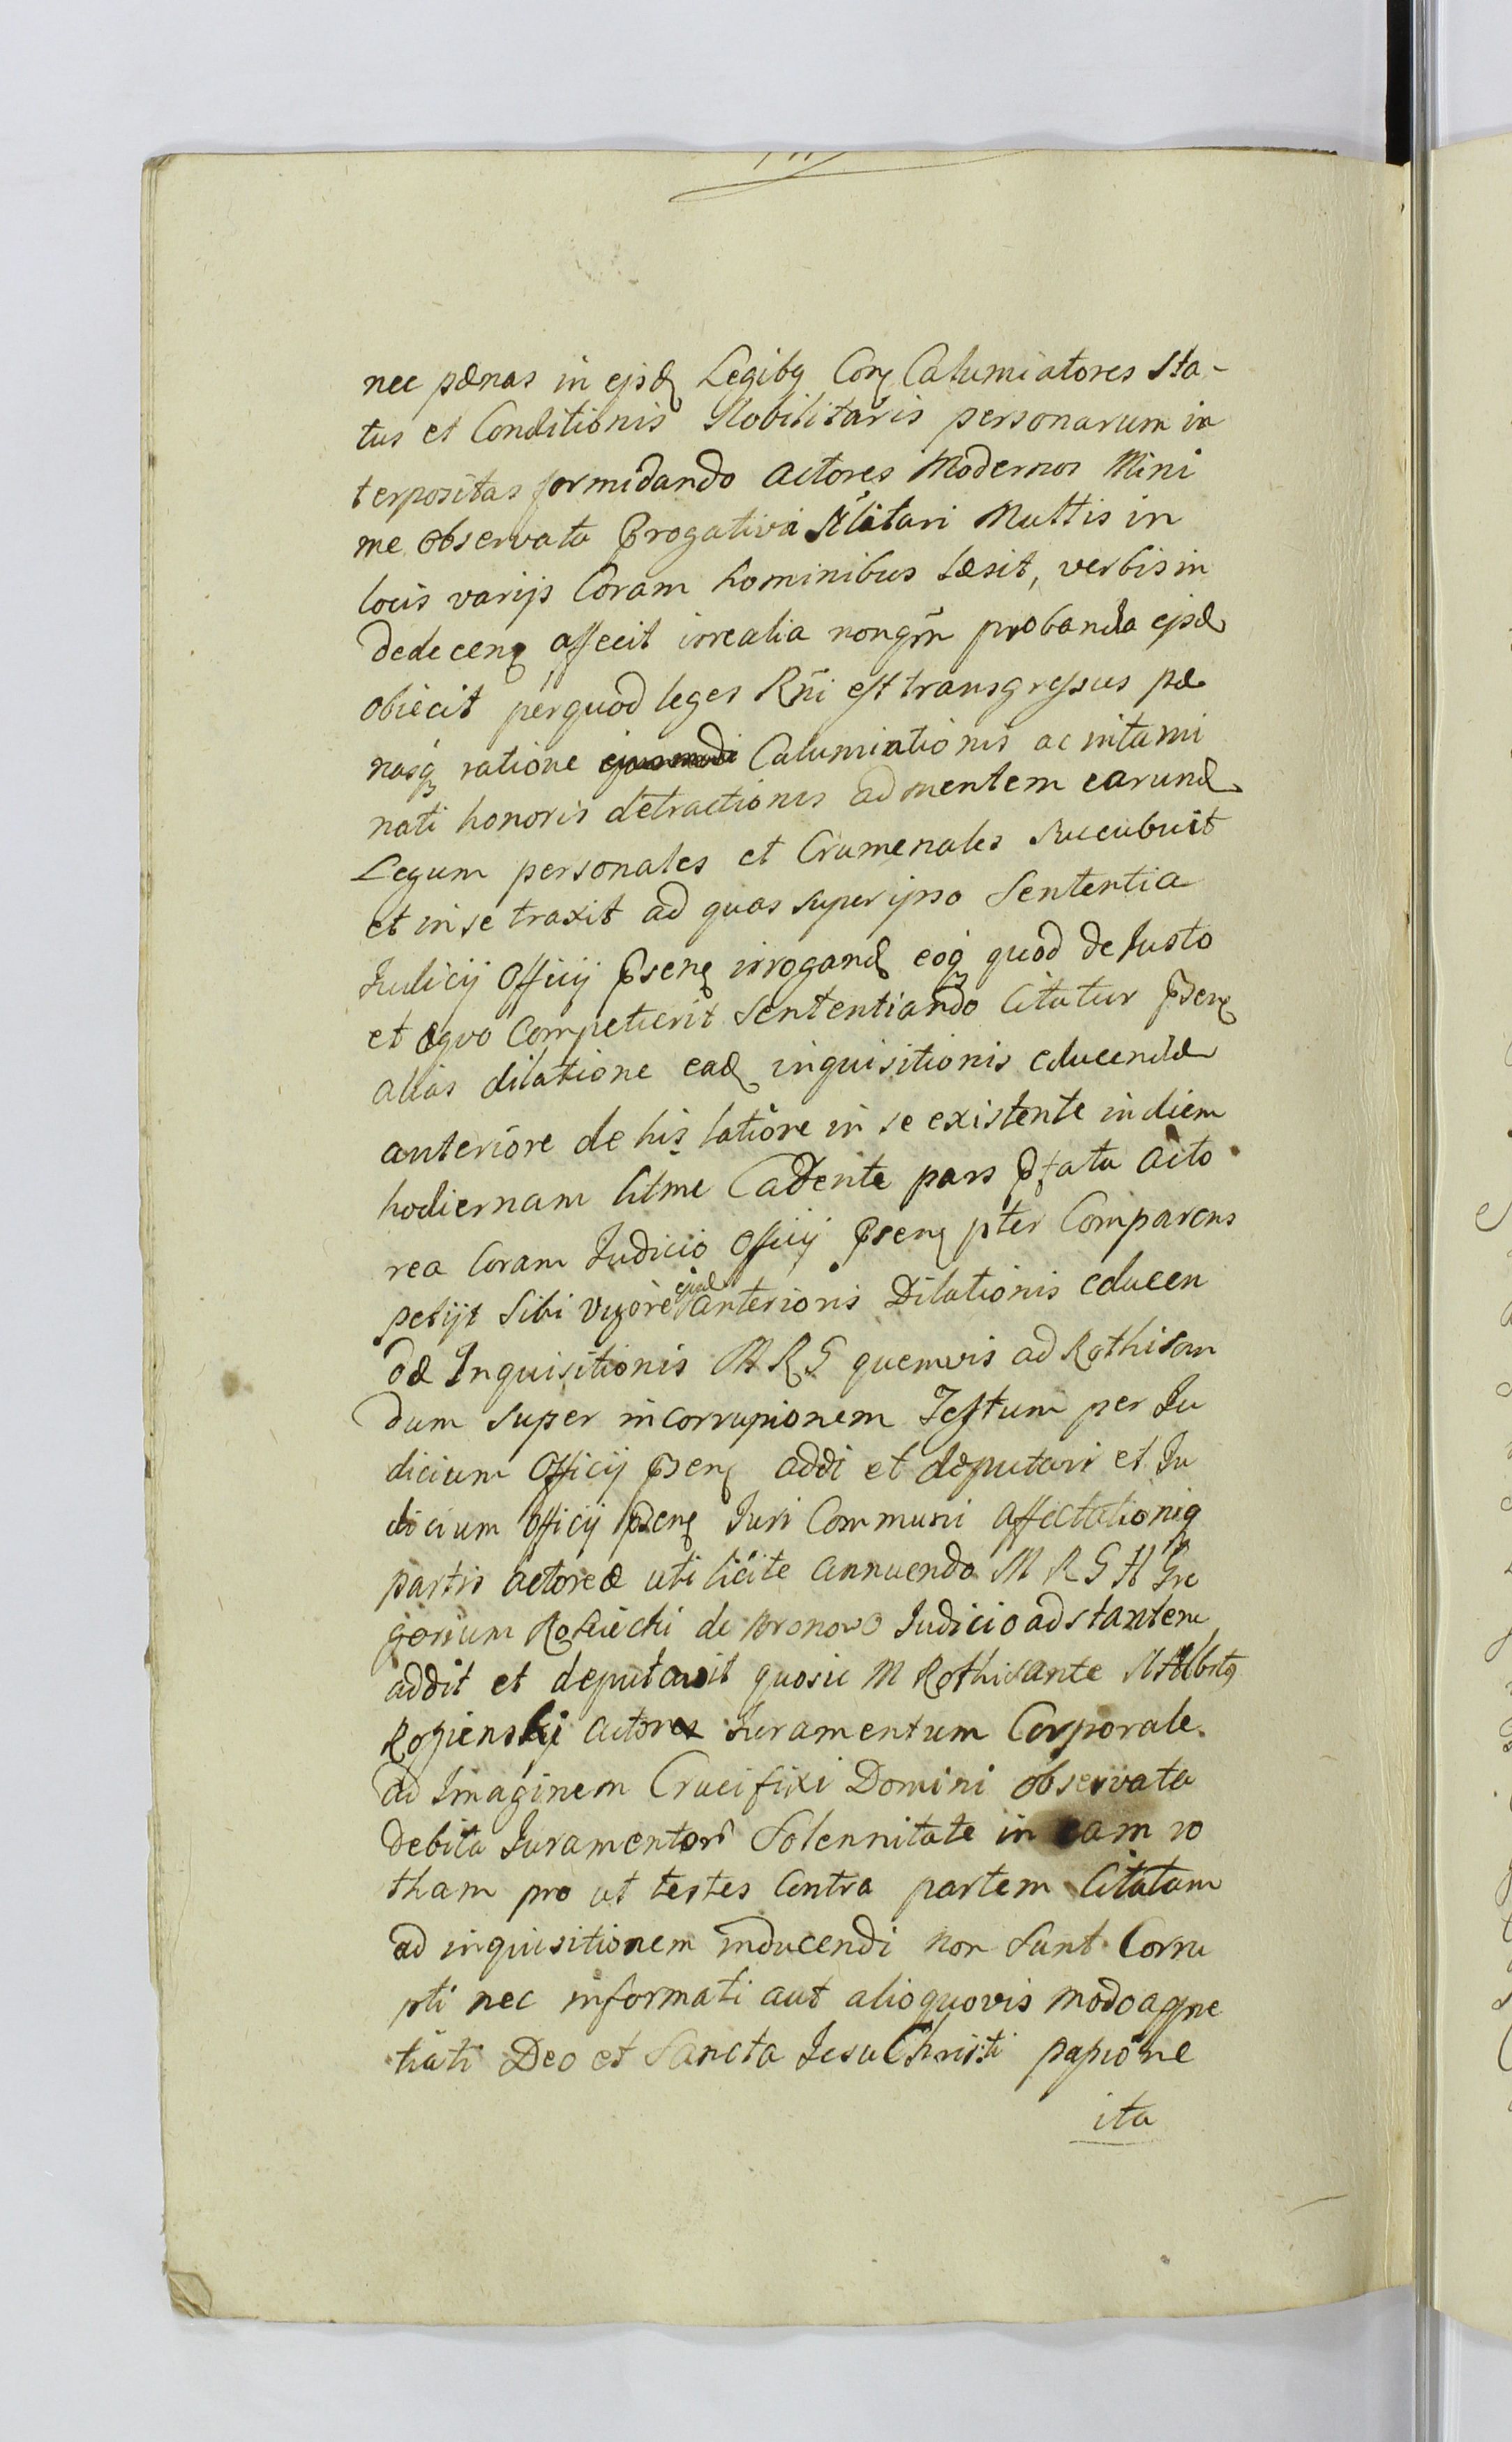 nec pænas in ejsd Legibq Conq Calumiatores Sta-
tus et Conditionis Nobilitaris personarum in
terpositas formidando actores Modernos Mini
me observata Progativa Nlitari Multis in
locis varijs Coram hominibus læsit, verbis in
dedecenq affecit irrealia nongrn probanda ejsd
obiecit perquod leges Rni est transgressus pæ
nasq ratione Calumiationis ac intami
nati honoris detractionis ad mentem earund
Legum personales et Crumenales succubuit
et in se traxit ad quas super ipso Sententia
Iudicij Officij Psenq irrogand eoq quod de Iusto
et æquo Competierit Sententiando Citatur Psenq
alias dilatione ead inquisitionis educendæ
anteriore de his latiore in se existente in diem
hodiernam litme Cadente pars Pfata acto
rea Coram Iudicio Officij Psenq pter Comparens
petijt Sibi vigore ejusd anterioris Dilationis educen
dæ Inquisitionis M R G quemvis ad Rothisan
dum super incorrupionem Testum per Iu
dicium Officij Psenq addi et deputari et Iu
dicium Officij Psenq Iuri Communi affectationiq
partis actoreæ uti licite annuendo M R G H Gre
gorium de Bronowo Iudicio adstantem
addit et deputavit quosic M Rothisante
actores Iuramentum Corporale
ad Imaginem Crucifixi Domini observata
debita Iuramentori Solennitate in eam ro
tham pro ut testes Contra partem Citatam
ad inquisitionem inducendi non Sunt Corru
pti nec informati aut alio quovis modo appre
tiati Deo et Sancta Iesu Christi passione
ita